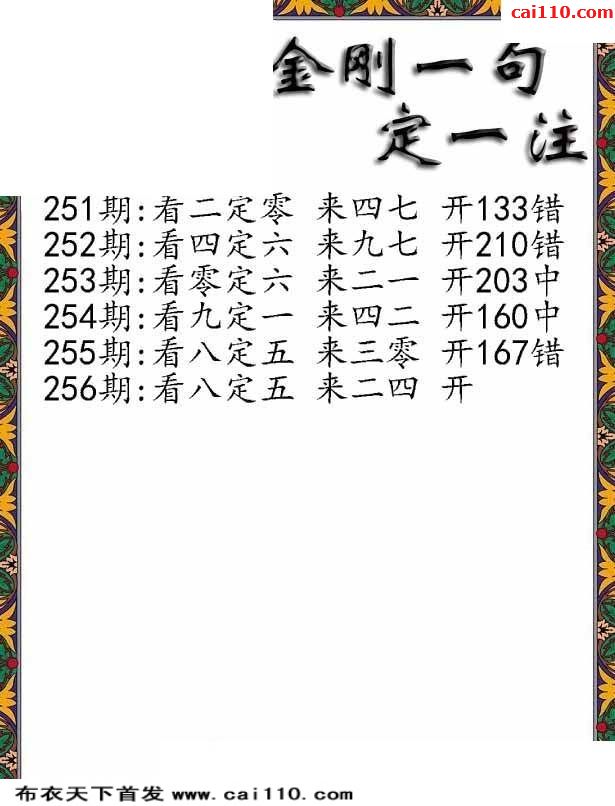 cai110.com
金刚一句
定一注
251期:看二定零 来四七 开133错
252期:看四定六 来九七 开210错
253期:看零定六 来二一 开203中
254期:看九定一 来四二 开160中
255期:看八定五 来三零 开167错
256期:看八定五 来二四 开
布衣天下首发 www.cai110.com